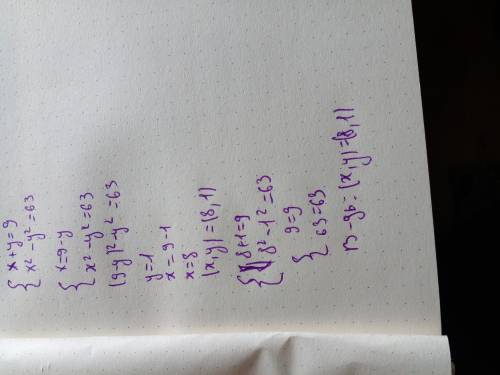 { x+y=9
x²-y²=63
x=9-y
{ x²-y²=63
(9-y)²-y²=63
y=1
x=9-1
x=8
(x,y)=(8,1)
{ 8+1=9
8²-1²=63
{ 9=9
63=63
(x,y)=(8,1)